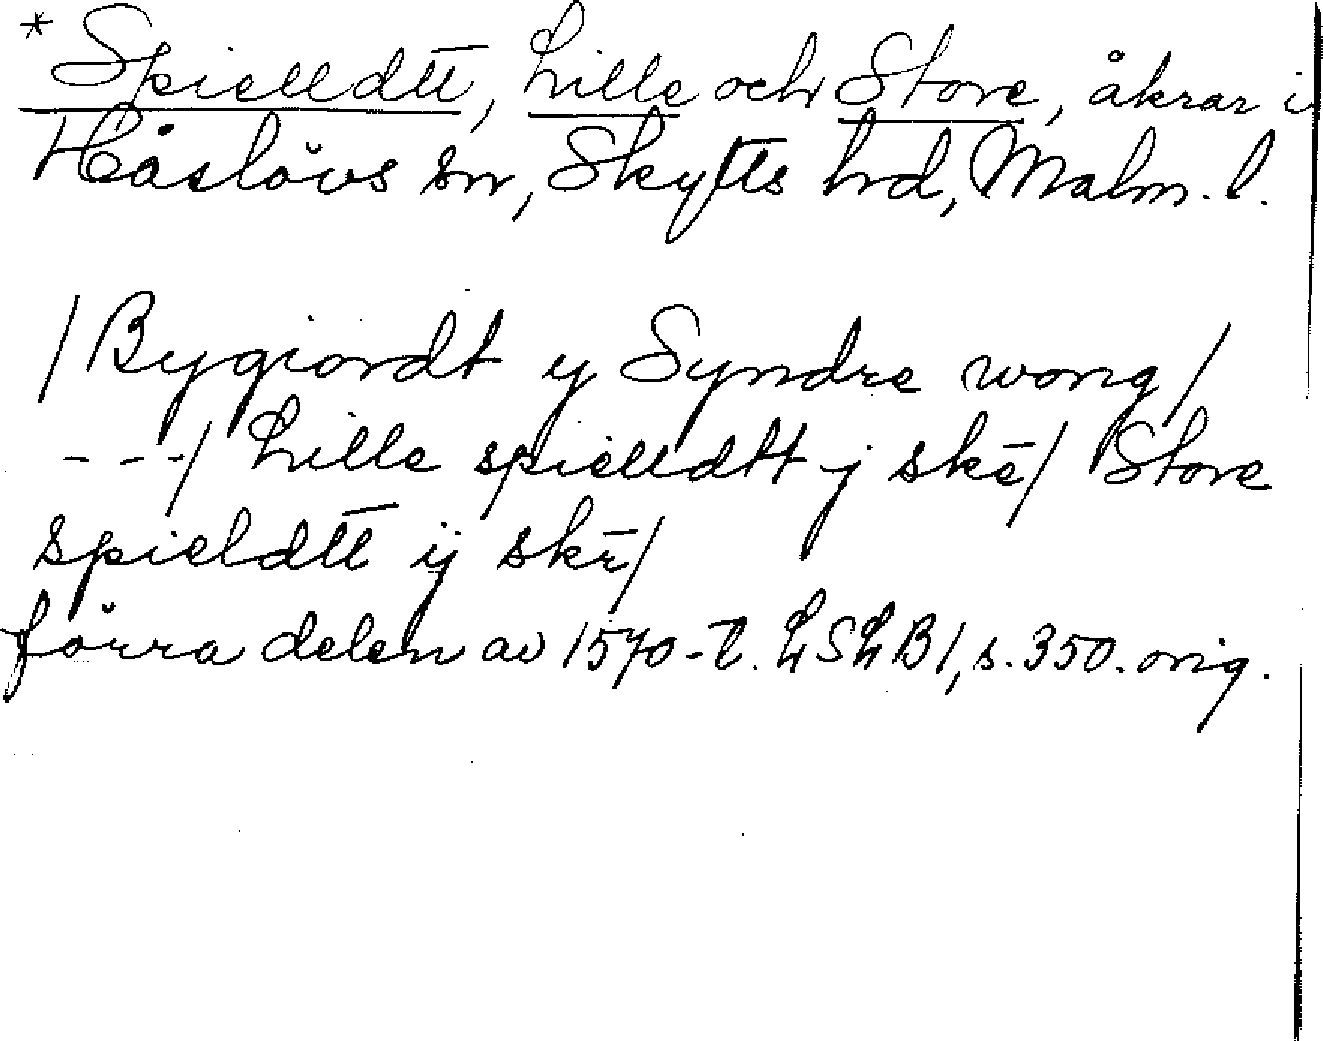 * Spielldtt, Lille och Store, åkrar i
Håslövs sn, Skytts hd, Malm. l.
/ Bygiordt y Syndre wong /
---/ Lille spielldtt j skē / Store
spieldtt ij skē /
förra delen av 1570-t. LSLB1, s. 350. orig.